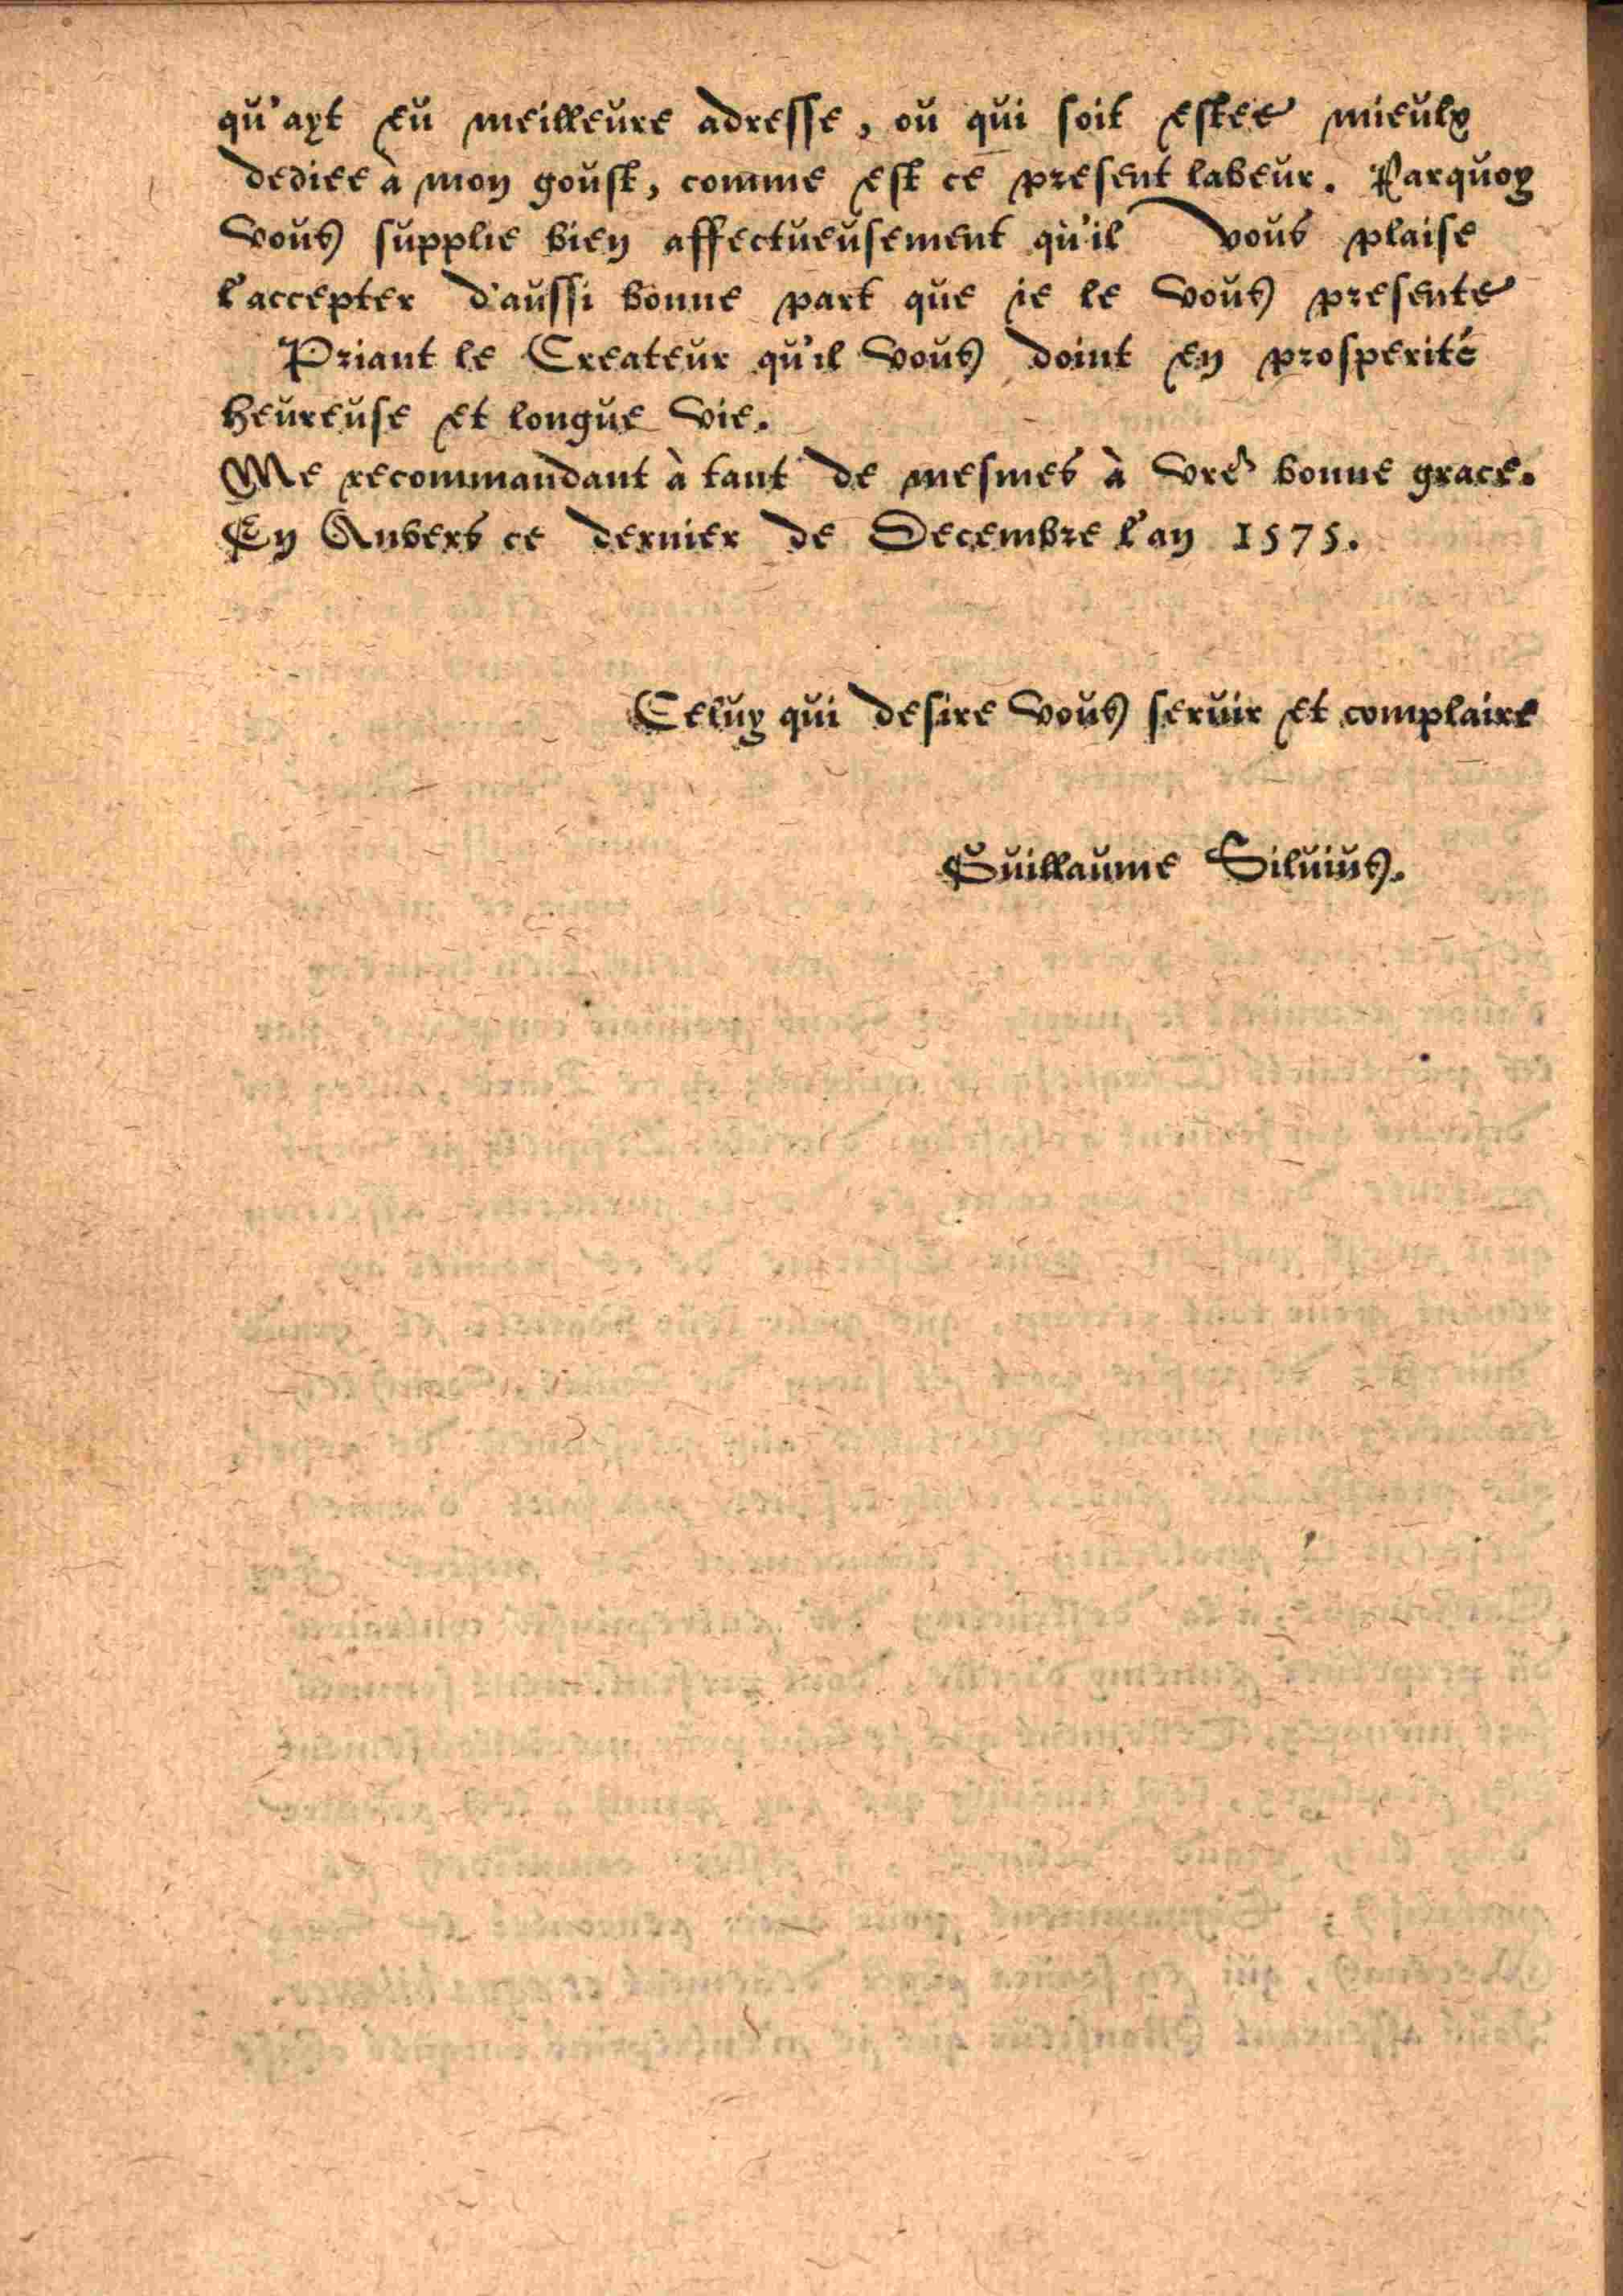 qu'ayt eu meilleure adresse, ou qui soit estee mieulx
dediee à mon goust, comme est ce present labeur. Parquoy
vous supplie bien affectueusement qu'il vous plaise
l'accepter d'aussi bonne part que ie le vous presente
Priant le Createur qu'il vous doint en prosperité
heureuse et longue vie.
Me recommandant à tant de mesmes à vre bonne grace.
En Anvers ce dernier de Decembre l'an 1575.
Celuy qui desire vous seruir et complaire
Guillaume Siluius.